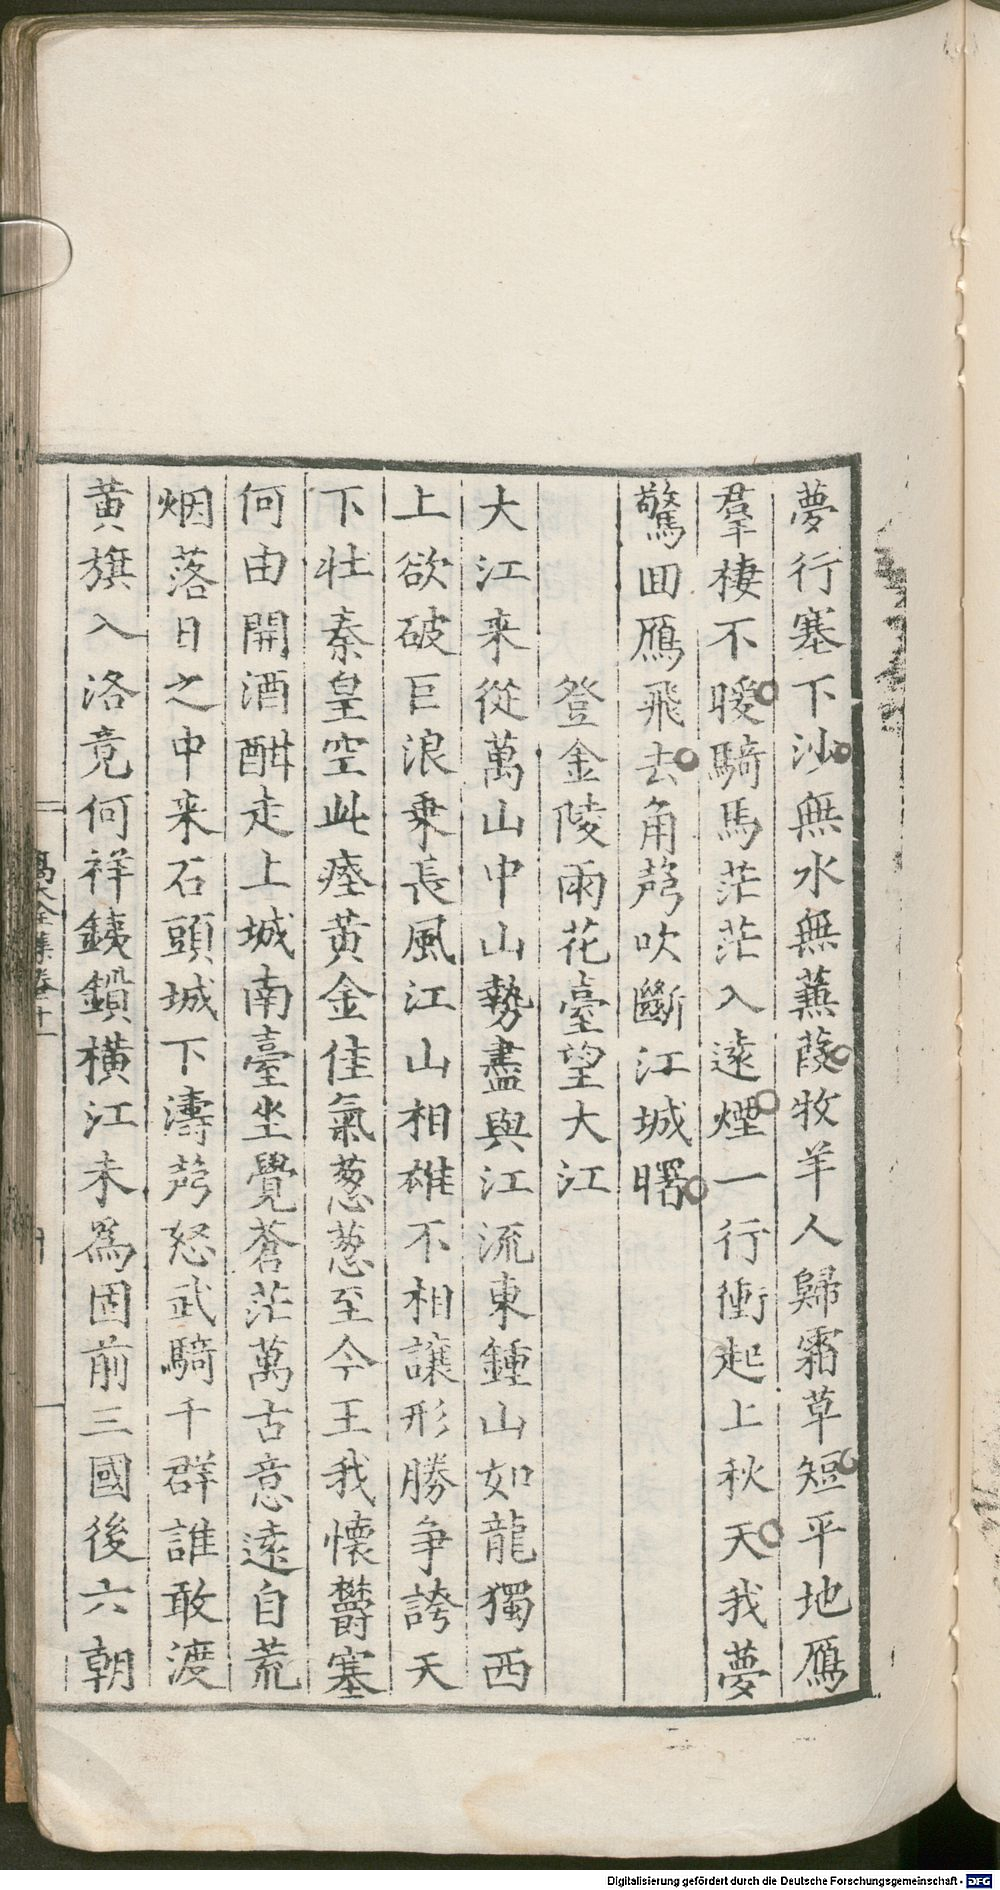 夢行塞下沙無水無蕪葭牧羊人歸霜草短平地鴈
羣棲不暖騎馬茫茫入遠煙一行衝起上秋天我夢
驚囬鴈飛去角聲吹斷江城曙
登金陵雨花臺望大江
大江来從萬山中山勢盡與江流東鍾山如龍獨西
上欲破巨浪乗長風江山相雄不相讓形勝争誇天
下壮秦皇空此瘞黄金佳氣葱葱至今王我懷鬱塞
何由開酒酣走上城南臺坐覺蒼茫萬古意遠自荒
烟落日之中来石頭城下濤聲怒武騎千群誰敢渡
黄旗入洛竟何祥銕鎖横江未為固前三國後六朝
高大全集卷十一
Digitalisierung gefördert durch die Deutsche Forschungsgemeinschaft - DFG